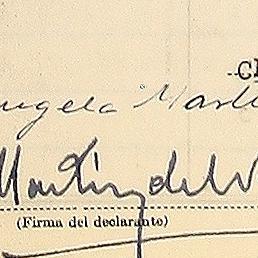 C
Angela Mart
Martín del V
(Firma del declarante)